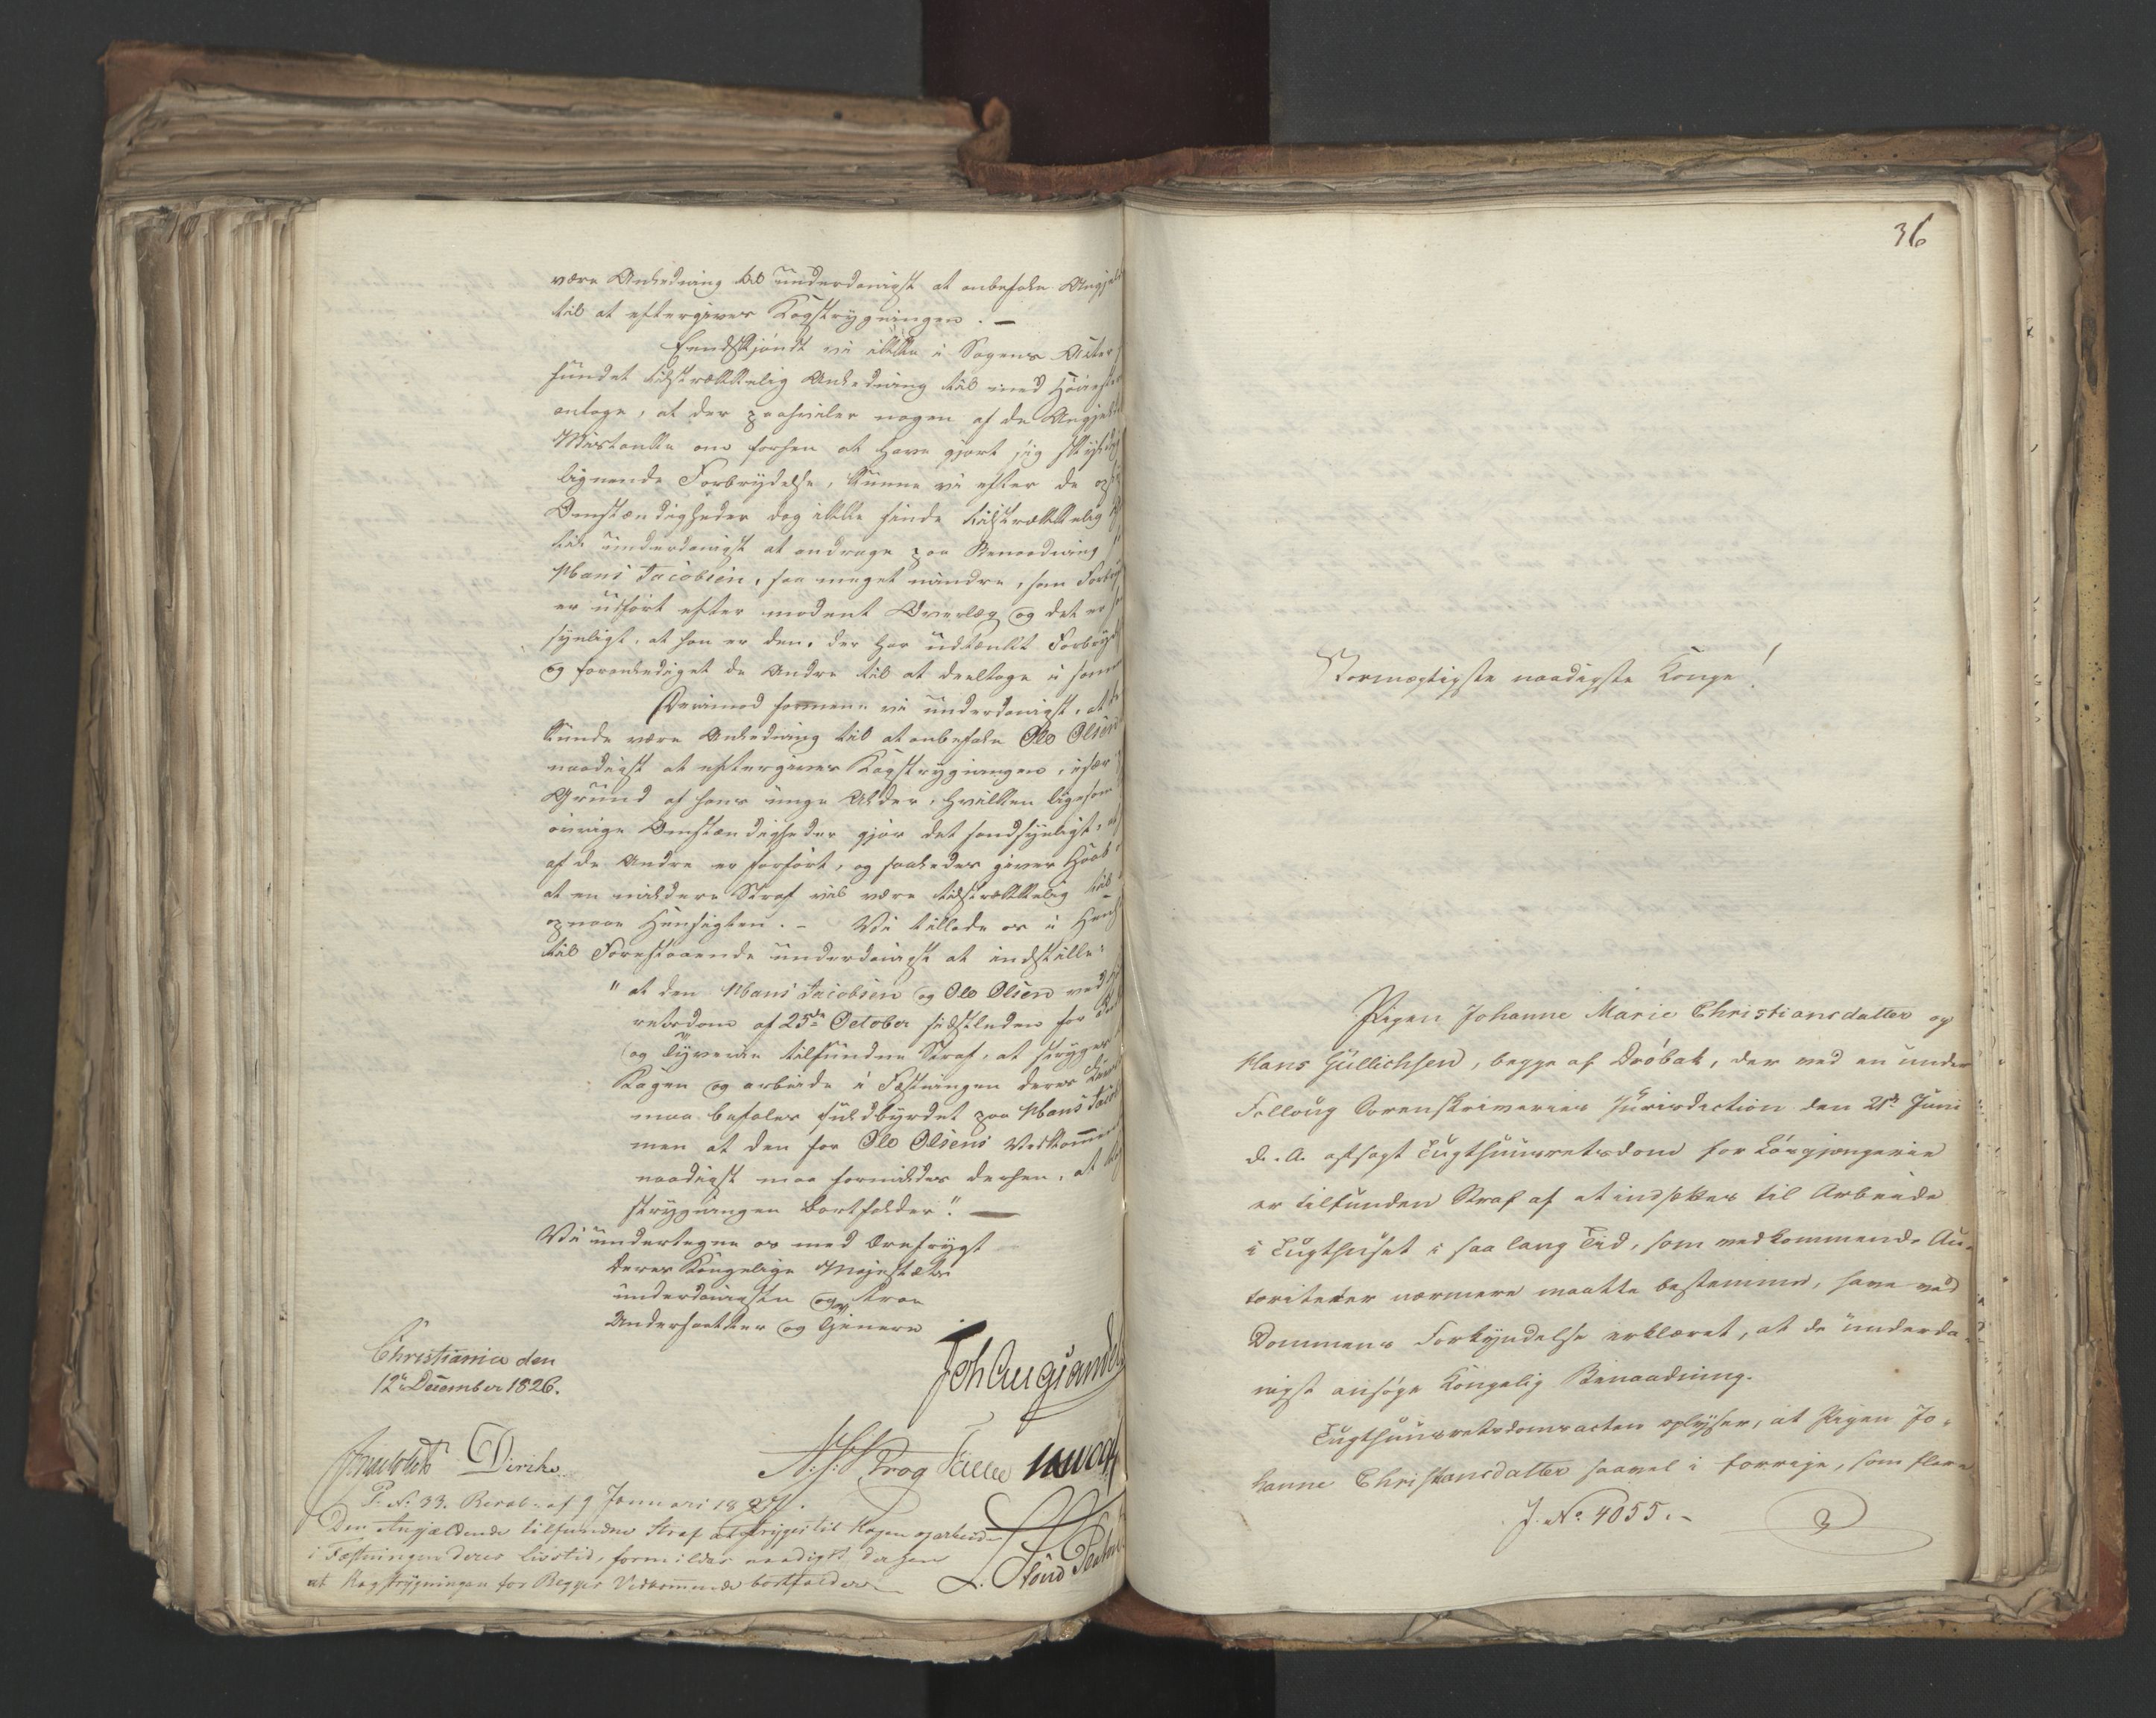 være Anledning til underdanigst at anbefale
til at eftergives Kagstrygningen. —
Endskjøndt vi ikke i Sagens Acter
fundet tilstrækkelig Anledning til med
antage, at der paahviler nogen af de
Mistanke om forhen at have gjort sig
lignende Forbrydelse, kunne vi efter de
Omstændigheder dog ikke finde tilstrækkelig
til underdanigst at andrage paa Benaadning
Hans Jacobsen, saa meget mindre, som
er udført efter modent Overlæg og det er
synligt, at han er den, der har udtænkt
og foranlediget de Andre til at deeltage i
Derimod formene vi underdanigst, at
kunde være Anledning til at anbefale Ole Olsen
naadigst at eftergives Kagstrygningen, især
Grund af hans unge Alder, hvilken ligesom
øvrige Omstændigheder gjør det sandsynligt,
af de Andre er forført, og saaledes giver Haab
at en mildere Straf vil være tilstrækkelig til
opnaae Hensigten. — Vi tillade os i
til Forestaaende underdanigst at indstille:
" at den Hans Jacobsen og Ole Olsen ved
retsdom af 25de October sidstleden for
og Tyverie tilfundne Straf, at stryges
Kagen og arbeide i Fæstningen deres
maa befales fuldbyrdet paa Hans
men at den for Ole Olsens Vedkommende
naadigst maa formildes derhen, at
strygningen bortfalder". —
Vi undertegne os med Ærefrygt
Deres Kongelige Majestæts
underdanigste og troe
Undersaatter og Tjenere
Christiania den
12te December 1826.
Diriks
P. No 33. Resol. af 9 Januari 1827.
Den Angjældende tilfundne Straf at stryges til Kagen og arbeide
i Fæstningen deres Livstid, formildes naadigst derhen
at Kagstrygningen for Begges Vedkommende bortfalder —
36
Stormægtigste naadigste Konge!
Pigen Johanne Marie Christiansdatter og
Hans Gullichsen, begge af Drøbak, der ved en under
Folloug Sorenskriveries Jurisdiction den 21de Juni
d. A. afsagt Tugthuusretsdom for Løsgjængerie
er tilfunden Straf af at indsættes til Arbeide
i Tugthuset i saa lang Tid, som vedkommende Au-
toriteter nærmere maatte bestemme, have ved
Dommens Forkyndelse erklæret, at de underda-
nigst ansøge Kongelig Benaadning.
Tugthuusretsdomsacten oplyser, at Pigen Jo-
hanne Christiansdatter saavel i forrige, som flere
J. No 4055. —